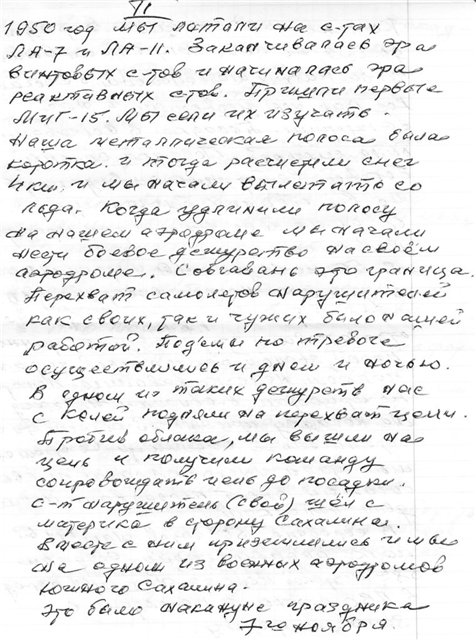 II
1950 год мы летали на с-тах
ЛА-7 и ЛА-11. Заканчивалась эра
винтовых с-тов и начиналась эра
реактивных с-тов. Пришли первые
МиГ-15. Мы сели их изучать.
Наша металлическая полоса была
коротка. и тогда расчистили снег
и мы начали вылетать со
льда. Когда удлинили полосу
на нашем аэродроме мы начали
нести боевое дежурство на своём
аэродроме. Совгавань это граница.
Перехват самолетов нарушителей
как своих, так и чужих было нашей
работой. Подъемы по тревоге
осуществлялись и днем и ночью.
В одном из таких дежурств нас
с Колей подняли на перехват цели.
Пробив облака, мы вышли на
цель и получили команду
сопровождать цель до посадки.
с-т нарушитель (свой) шёл с
материка в сторону Сахалина.
Вместе с ним приземлились и мы
на одном из военных аэродромов
Южного Сахалина.
Это было накануне праздника
7го ноября.